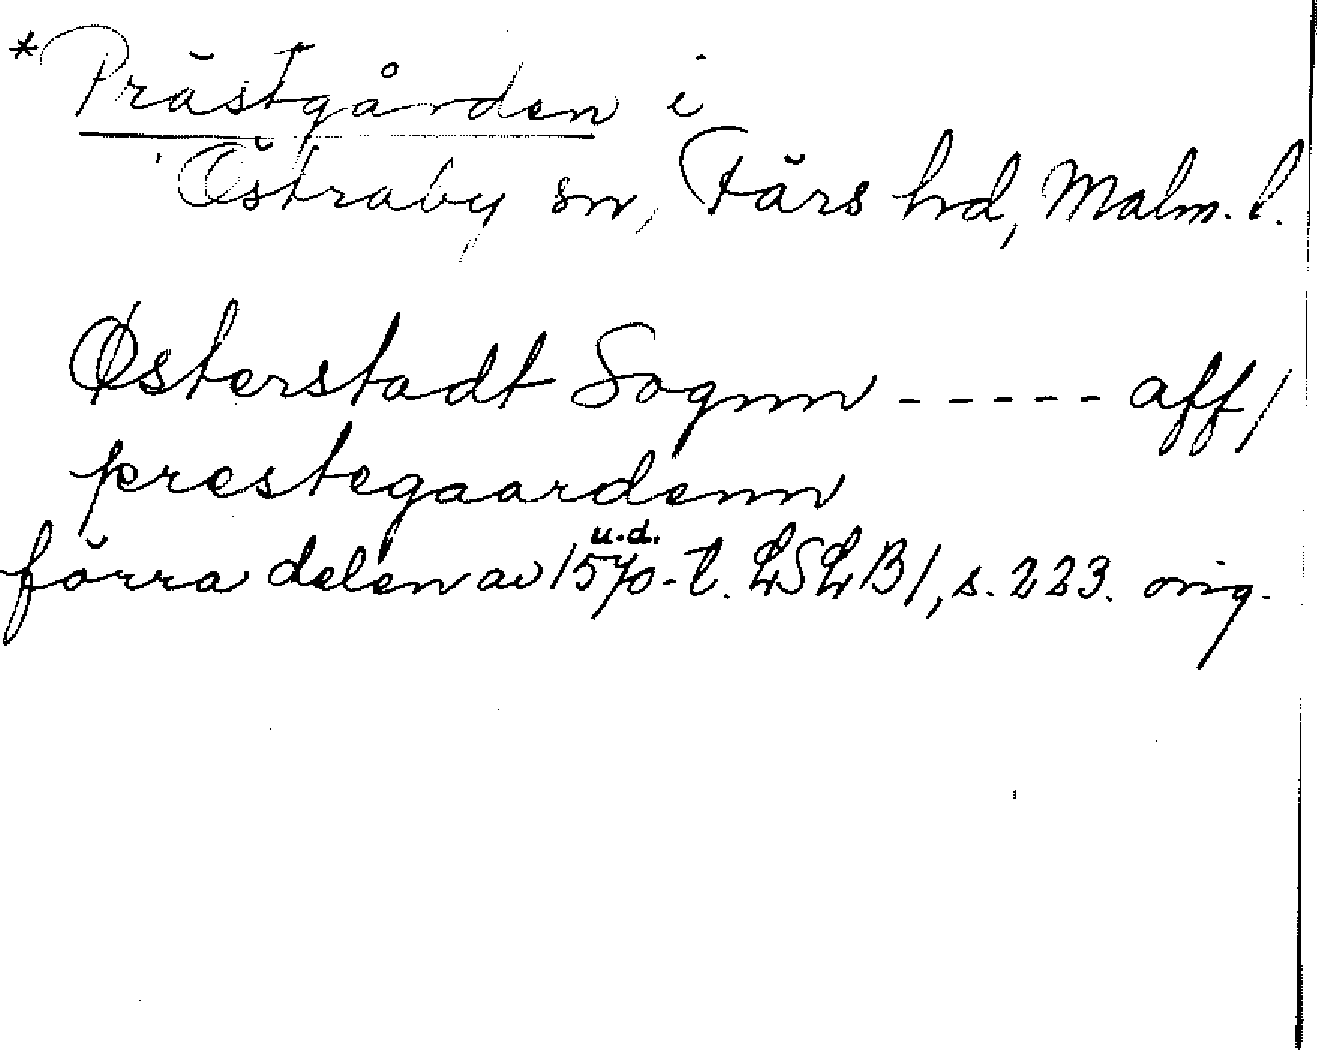 *Prästgården i
Östraby sn, Färs hrd, Malm. l.
Østerstadt Sognn ----- aff/
prestegaardenn
u.d.
förra delen av 1570-t. LSLB1, s. 223. orig.